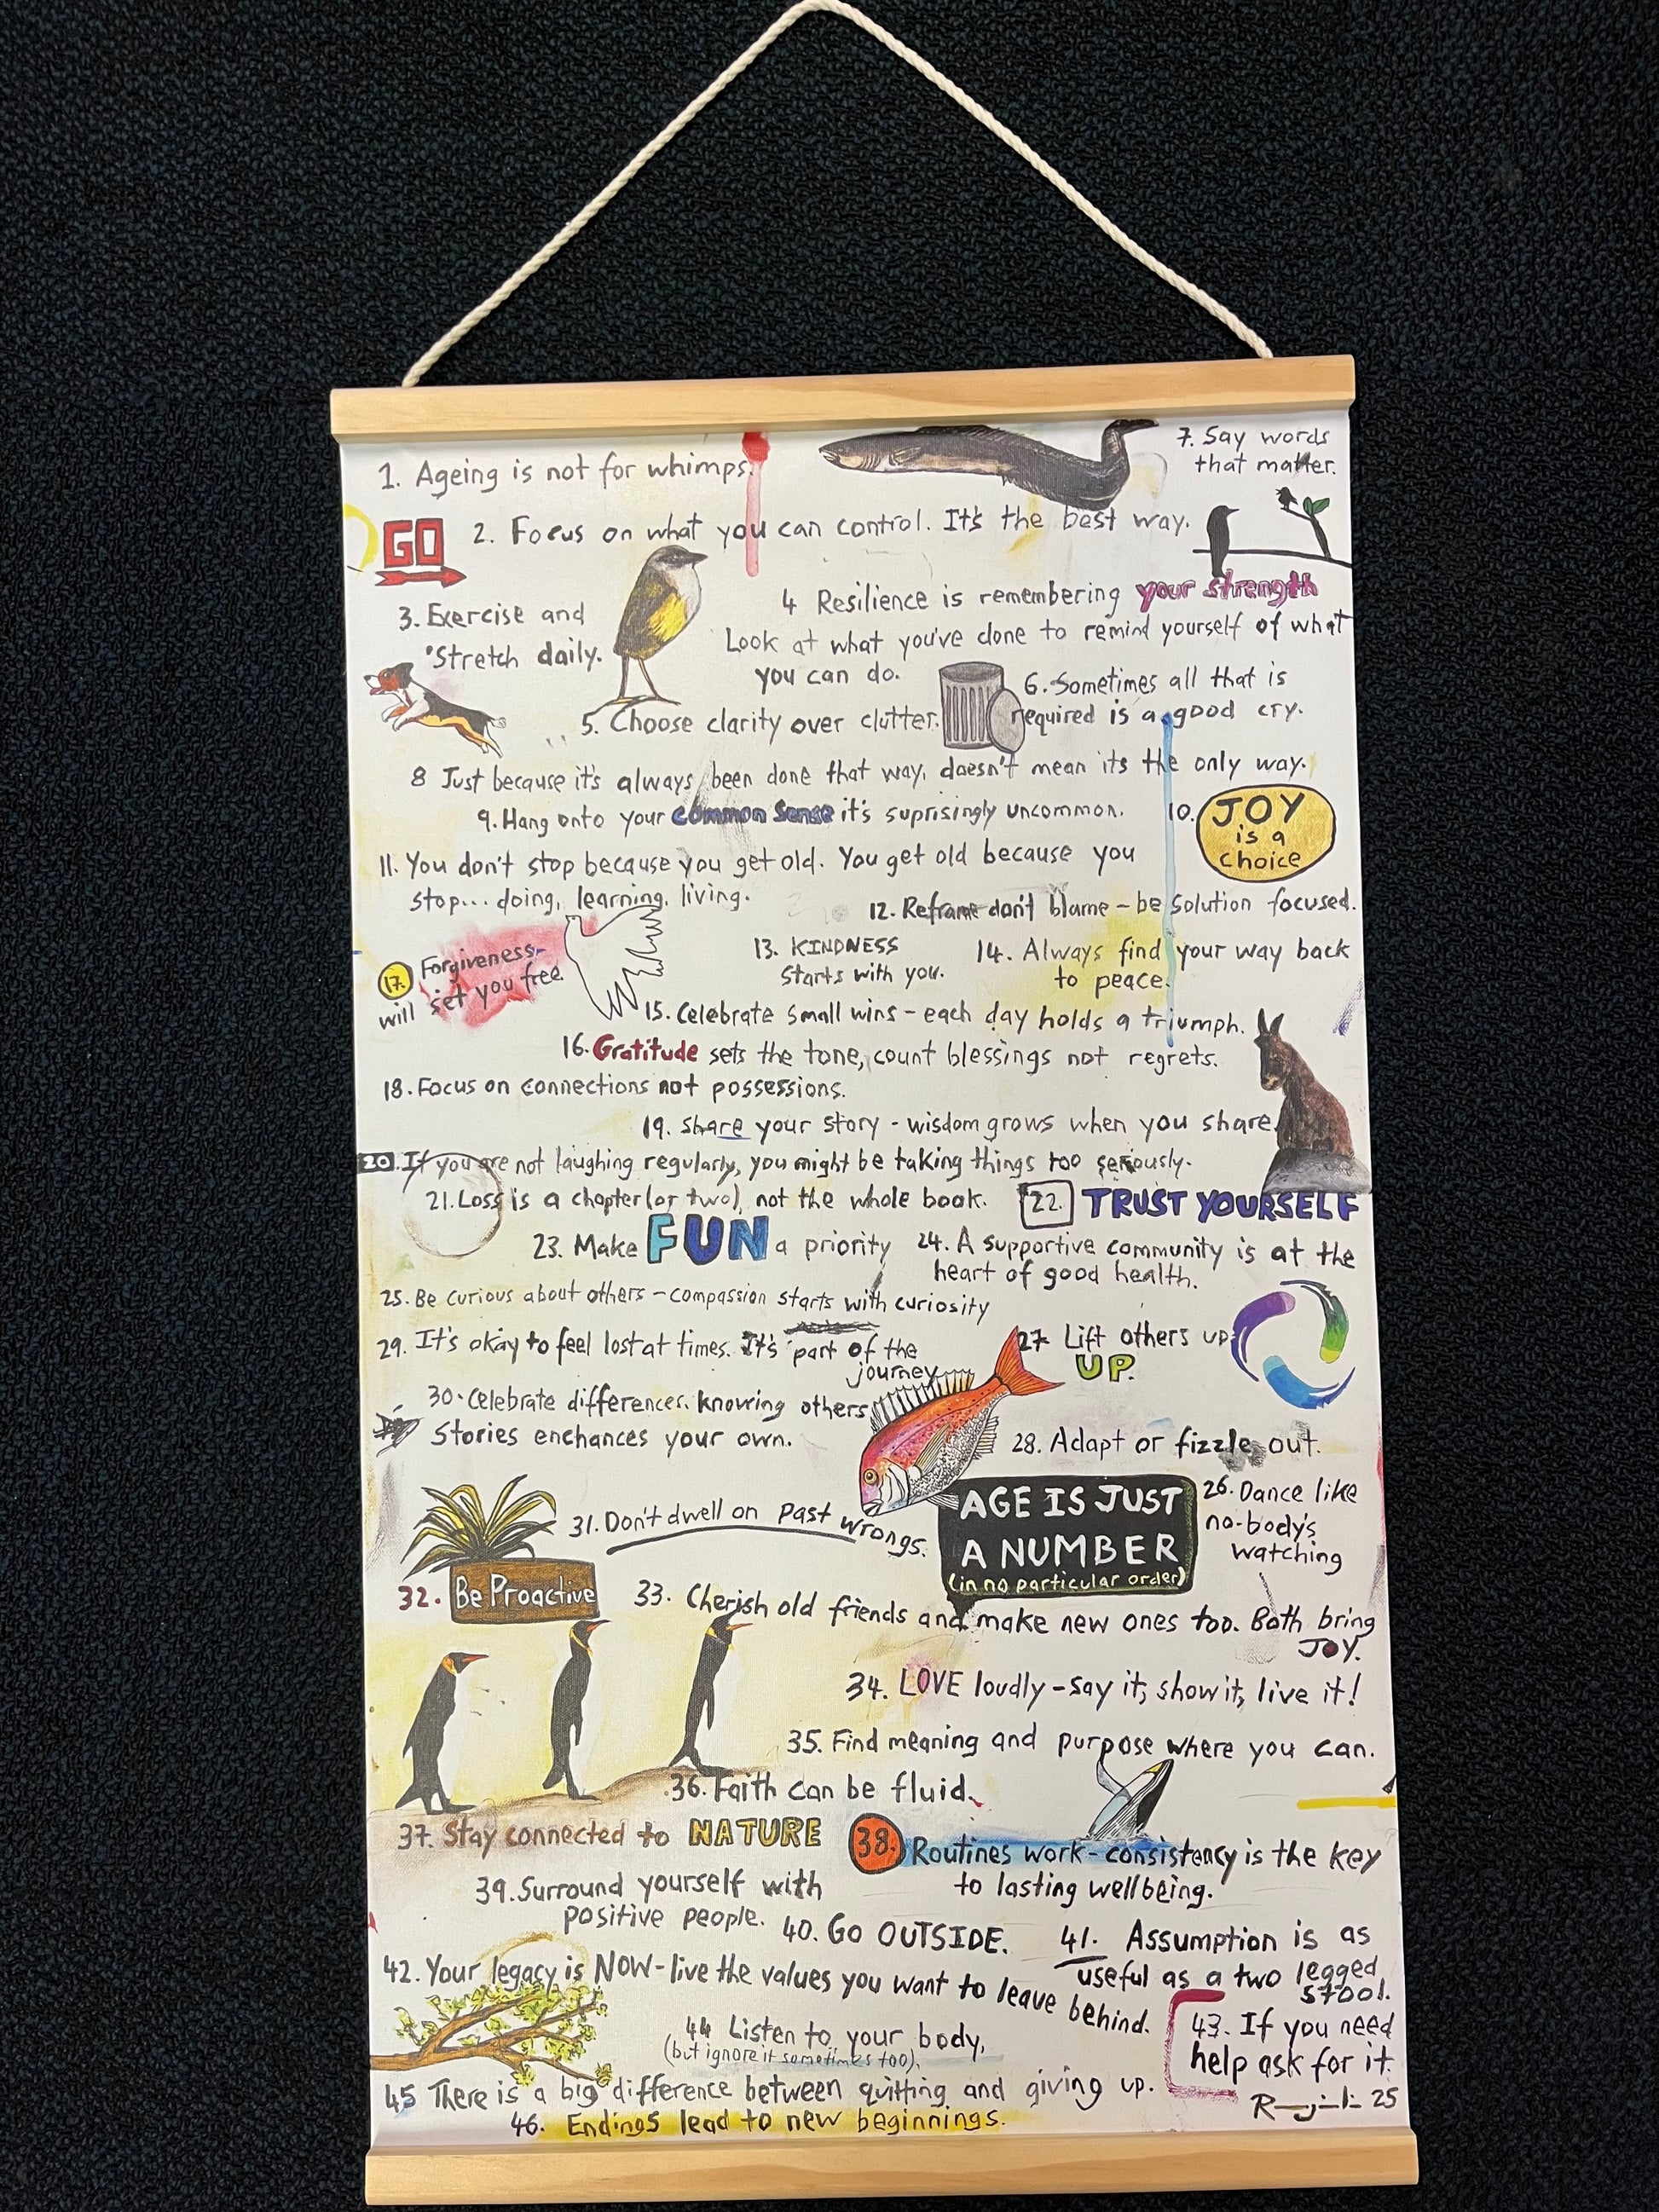 1. Ageing is not for whimps.
7. Say words
that matter.
GO
2. Focus on what you can control. It's the best way.
3. Exercise and
Stretch daily.
4 Resilience is remembering your strength
Look at what you've done to remind yourself of what
you can do.
5. Choose clarity over clutter.
6. Sometimes all that is
required is a good cry.
8 Just because it's always been done that way, doesn't mean its the only way.
9. Hang onto your common sense it's suprisingly uncommon.
10. JOY
is a
choice
11. You don't stop because you get old. You get old because you
stop... doing, learning, living.
12. Reframe don't blame - be solution focused.
17. Forgiveness
will set you free
13. KINDNESS
starts with you.
14. Always find your way back
to peace.
15. Celebrate small wins - each day holds a triumph.
16. Gratitude sets the tone, count blessings not regrets.
18. Focus on connections not possessions.
19. Share your story - wisdom grows when you share
20. If you are not laughing regularly, you might be taking things too seriously.
21. Loss is a chapter (or two), not the whole book.
22. TRUST YOURSELF
23. Make FUN a priority
24. A supportive community is at the
heart of good health.
25. Be curious about others - compassion starts with curiosity
29. It's okay to feel lost at times. It's part of the
journey
27. Lift others up
UP.
30. Celebrate differences. knowing others
stories enchances your own.
28. Adapt or fizzle out.
31. Don't dwell on past wrongs.
AGE IS JUST
A NUMBER
(in no particular order)
26. Dance like
no-body's
watching
32. Be Proactive
33. Cherish old friends and make new ones too. Both bring
JOY.
34. LOVE loudly - say it, show it, live it!
35. Find meaning and purpose where you can.
36. Faith can be fluid.
37. Stay connected to NATURE
38. Routines work - consistency is the key
to lasting wellbeing.
39. Surround yourself with
positive people.
40. GO OUTSIDE.
41. Assumption is as
useful as a two legged
stool.
42. Your legacy is NOW - live the values you want to leave behind.
43. If you need
help ask for it.
44 Listen to your body,
(but ignore it sometimes too).
45 There is a big difference between quitting and giving up.
25
46. Endings lead to new beginnings.